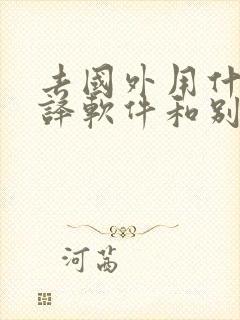 去國外用什
譯軟件和别
河茜